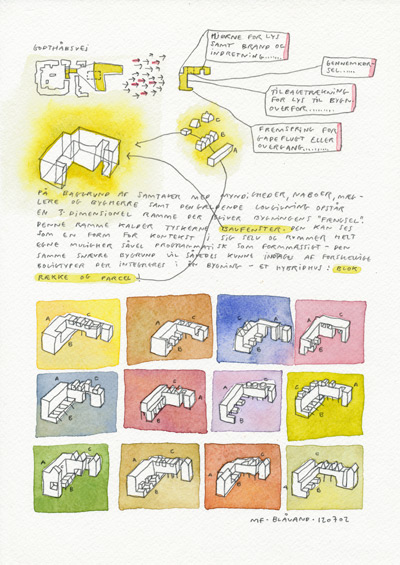 GODTHÅBSVEJ
HJØRNE FOR LYS
SAMT BRAND OG
INDRETNING.......
GENNEMKØR-
SEL......
TILBAGETRÆKNING
FOR LYS TIL BYGN.
OVERFOR....
FREMSPRING FOR
GADEFLUGT ELLER
OVERGANG......
C
B
A
PÅ BAGGRUND AF SAMTALER MED MYNDIGHEDER, NABOER, MÆG-
LERE OG BYGHERRE SAMT DEN GÆLDENDE LOVGIVNING OPSTÅR
EN 3-DIMENSIONEL RAMME DER BLIVER BYGNINGENS "FÆNGSEL".
DENNE RAMME KALDER TYSKERNE BAUFENSTER. DEN KAN SES
SOM EN FORM FOR KONTEKST I SIG SELV OG RUMMER HELT
EGNE MULIGHEDER SÅVEL PROGRAMMATISK SOM FORMMÆSSIGT - DEN
SAMME SNÆVRE BYGGRUND VIL SÅLEDES KUNNE INDTAGES AF FORSKELLIGE
BOLIGTYPER DER INTEGRERES I EN BYGNING - ET HYBRIDHUS: BLOK
RÆKKE OG PARCEL
A C B
A C B
A C B
A C B
A C B
A C B
A C B
A C B
A C B
A C B
A C B
A C B
MF - BLÅVAND - 120702